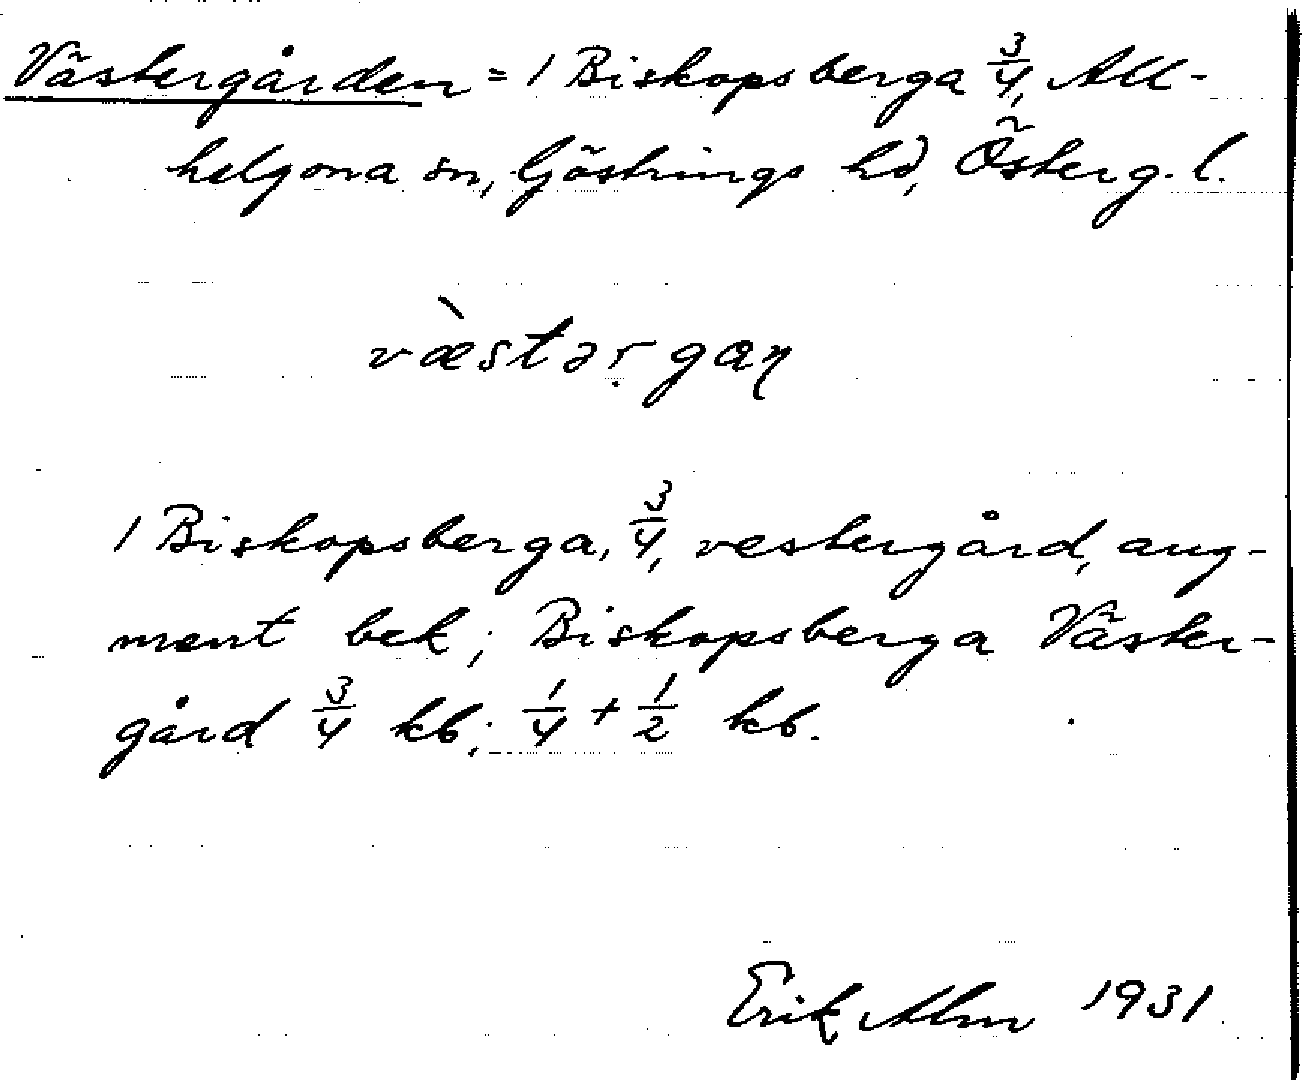 Västergården = 1 Biskopsberga 3/4, All-
helgona sn, Göstrings hd, Österg. l.
væ̀stərgaɳ
1 Biskopsberga, 3/4, vestergård, aug-
ment bek; Biskopsberga Väster-
gård 3/4 kb; 1/4 + 1/2 kb.
Erik Alm 1931